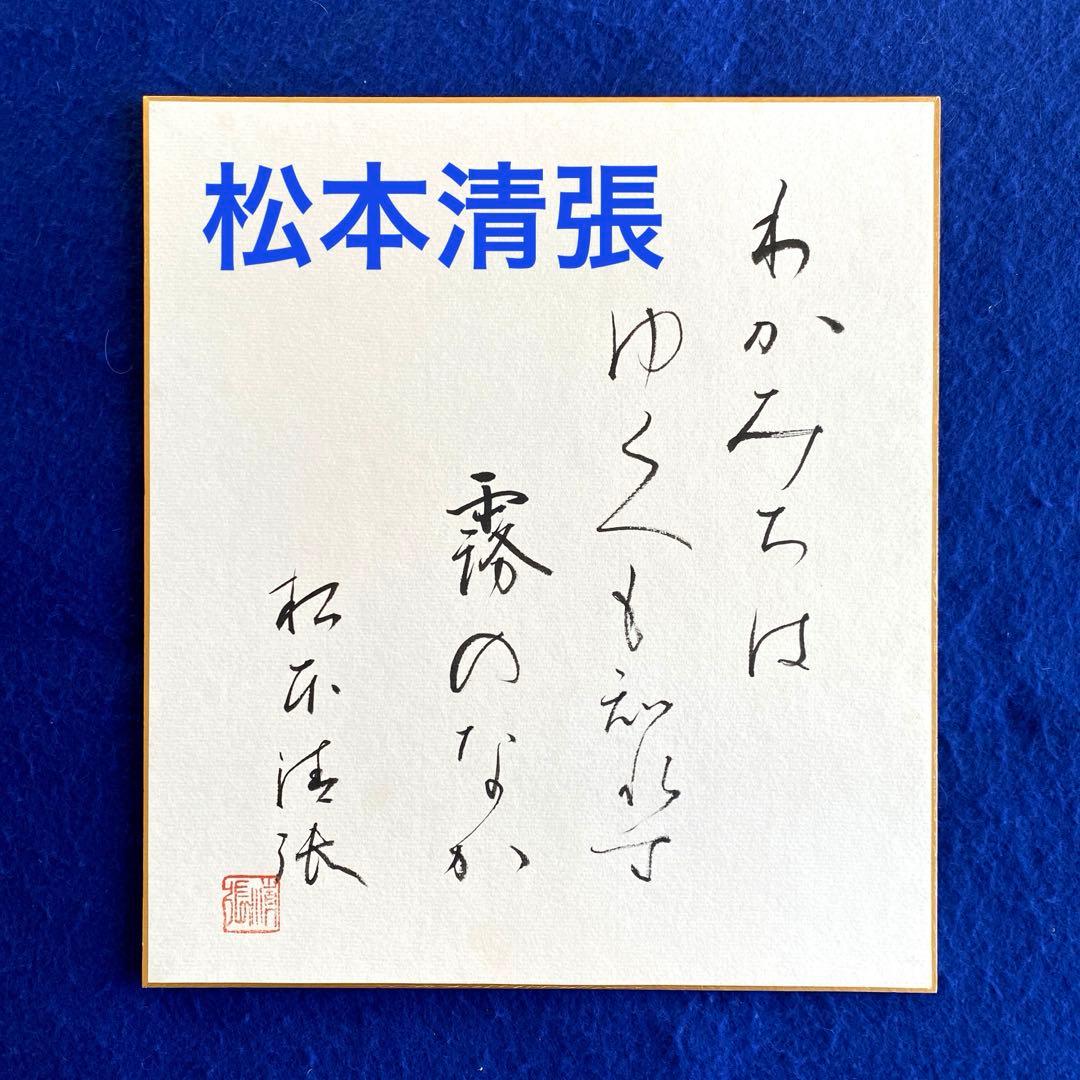 松本清張
わかみちは
ゆくへも知れす
霧のなか
松本清張
清張